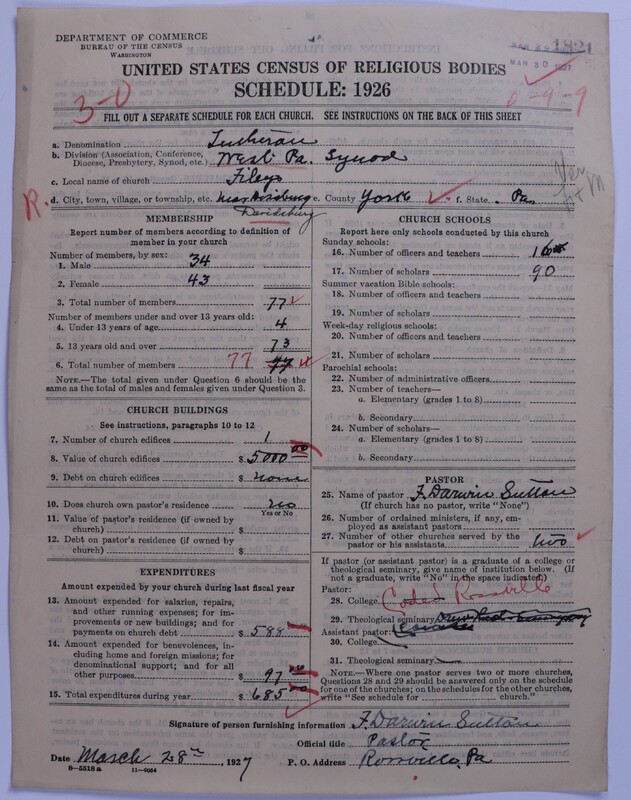 DEPARTMENT OF COMMERCE
BUREAU OF THE CENSUS
WASHINGTON
MAR 30 1927
UNITED STATES CENSUS OF RELIGIOUS BODIES
SCHEDULE: 1926
3-0
0-9-9
FILL OUT A SEPARATE SCHEDULE FOR EACH CHURCH. SEE INSTRUCTIONS ON THE BACK OF THIS SHEET
a. Denomination Lutheran
b. Division (Association, Conference, Diocese, Presbytery, Synod, etc.) West Pa. Synod
c. Local name of church Fileys
R. d. City, town, village, or township, etc. near e. County York f. State Pa.
Davidsburg
MEMBERSHIP
Report number of members according to definition of member in your church
Number of members, by sex:
1. Male 34
2. Female 43
3. Total number of members 77
Number of members under and over 13 years old:
4. Under 13 years of age 4
5. 13 years old and over 73
6. Total number of members 77 77
NOTE.—The total given under Question 6 should be the same as the total of males and females given under Question 3.
CHURCH BUILDINGS
See instructions, paragraphs 10 to 12
7. Number of church edifices 1
8. Value of church edifices $ 5000 00
9. Debt on church edifices $ none
10. Does church own pastor's residence no
Yes or No
11. Value of pastor's residence (if owned by church) $
12. Debt on pastor's residence (if owned by church) $
EXPENDITURES
Amount expended by your church during last fiscal year
13. Amount expended for salaries, repairs, and other running expenses; for improvements or new buildings; and for payments on church debt $ 588
14. Amount expended for benevolences, including home and foreign missions; for denominational support; and for all other purposes $ 97 00
15. Total expenditures during year $ 685 00
CHURCH SCHOOLS
Report here only schools conducted by this church
Sunday schools:
16. Number of officers and teachers
17. Number of scholars 90
Summer vacation Bible schools:
18. Number of officers and teachers
19. Number of scholars
Week-day religious schools:
20. Number of officers and teachers
21. Number of scholars
Parochial schools:
22. Number of administrative officers
23. Number of teachers—
a. Elementary (grades 1 to 8)
b. Secondary
24. Number of scholars—
a. Elementary (grades 1 to 8)
b. Secondary
PASTOR
25. Name of pastor F. Darwin Sutton
(If church has no pastor, write "None")
26. Number of ordained ministers, if any, employed as assistant pastors
27. Number of other churches served by the pastor or his assistants two
If pastor (or assistant pastor) is a graduate of a college or theological seminary, give name of institution below. (If not a graduate, write "No" in the space indicated)
Pastor:
28. College Coded Rossville
29. Theological seminary
Assistant pastor:
30. College
31. Theological seminary
NOTE.—Where one pastor serves two or more churches, Questions 28 and 29 should be answered only on the schedule for one of the churches; on the schedules for the other churches, write "See schedule for church."
Signature of person furnishing information F. Darwin Sutton
Official title Pastor
Date March 28th, 1927 P. O. Address Rossville, Pa
8—5518a 11—9064